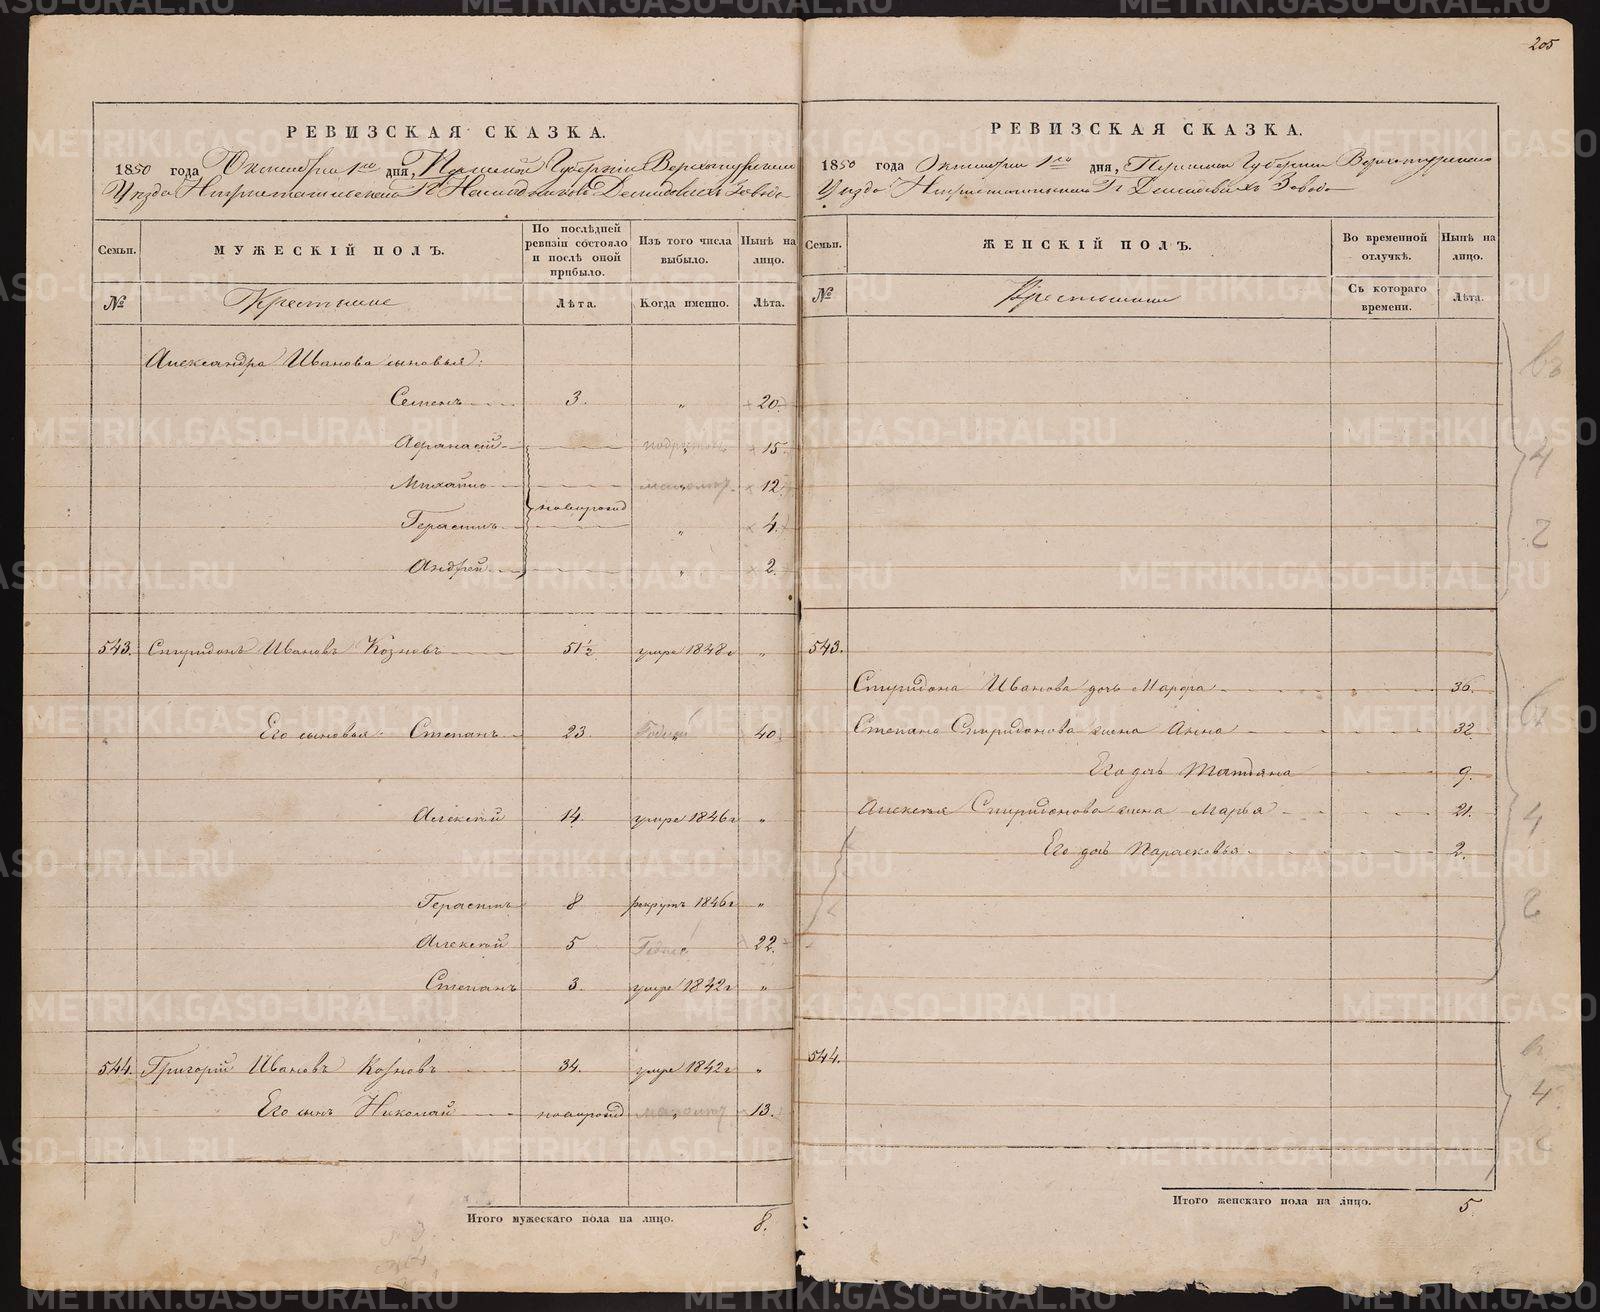 205
РЕВИЗСКАЯ СКАЗКА.
1850 года Октября 1го дня, Пермской Губерніи Верхотурскаго
Уѣзда Нижнетагильскаго Гг Наслѣдниковъ Демидовыхъ Завода
Семьи.
МУЖЕСКІЙ ПОЛЪ.
По послѣдней ревизіи состояло и послѣ оной прибыло.
Изъ того числа выбыло.
Нынѣ на лицо.
№
Крестьяне
Лѣта.
Когда именно.
Лѣта.
Александра Иванова сыновья:
Семенъ 3. " 20.
Афанасій 15.
Михайло 12.
новорожд
Герасимъ " 4.
Андрей " 2.
543. Спиридонъ Ивановъ Козновъ 51½ умре 1848г "
Его сыновья Степанъ 23. " 40.
Алексѣй 14. умре 1846г "
Герасимъ 8 рекрутъ 1846г "
Алексѣй 5 22.
Степанъ 3. умре 1842г "
544. Григорій Ивановъ Козновъ 34. умре 1842г "
Его сынъ Николай новорожд " 13.
Итого мужескаго пола на лицо. 8.
РЕВИЗСКАЯ СКАЗКА.
1850 года Октября 1го дня, Пермской Губерніи Верхотурскаго
Уѣзда Нижнетагильскаго Гг Демидовыхъ Завода
Семьи.
ЖЕНСКІЙ ПОЛЪ.
Во временной отлучкѣ.
Нынѣ на лицо.
№
Крестьянки
Съ котораго времени.
Лѣта.
543.
Спиридона Иванова дочь Марфа 36.
Степана Спиридонова жена Анна 32.
Его дочь Татьяна 9.
Алексѣя Спиридонова жена Марья 21.
Его дочь Парасковья 2.
544.
Итого женскаго пола на лицо. 5
METRIKI.GASO-URAL.RU